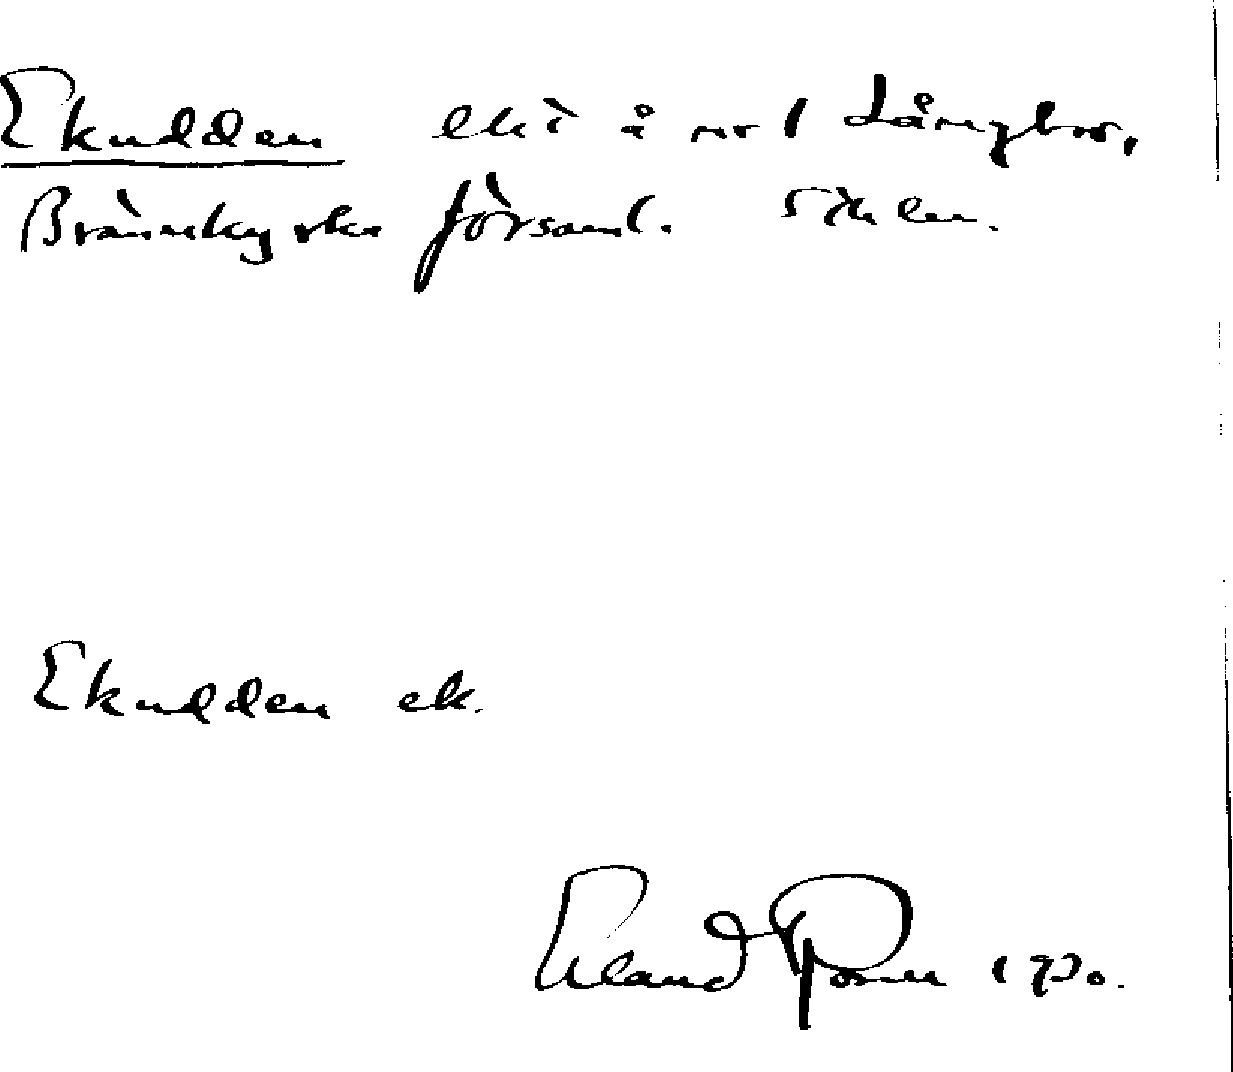 Ekudden ek i å nr 1 Långbro,
Brännkyrka församl. Sthlm.
Ekudden ek.
Erland Rosell 1970.